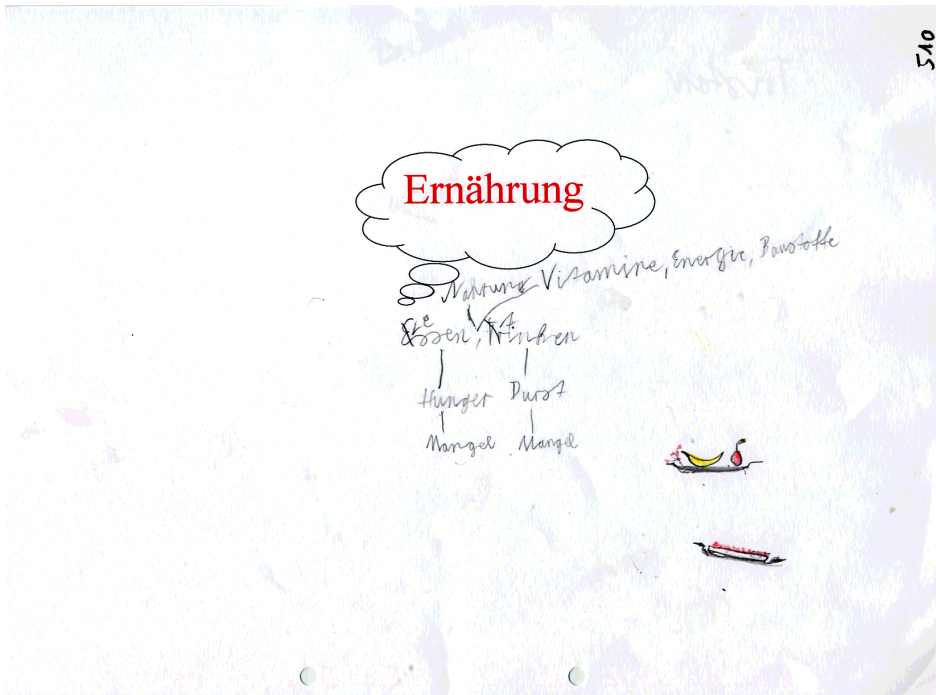 510
Ernährung
Nahrung Vitamine, Energie, Baustoffe
Essen, Trinken
Hunger Durst
Mangel Mangel